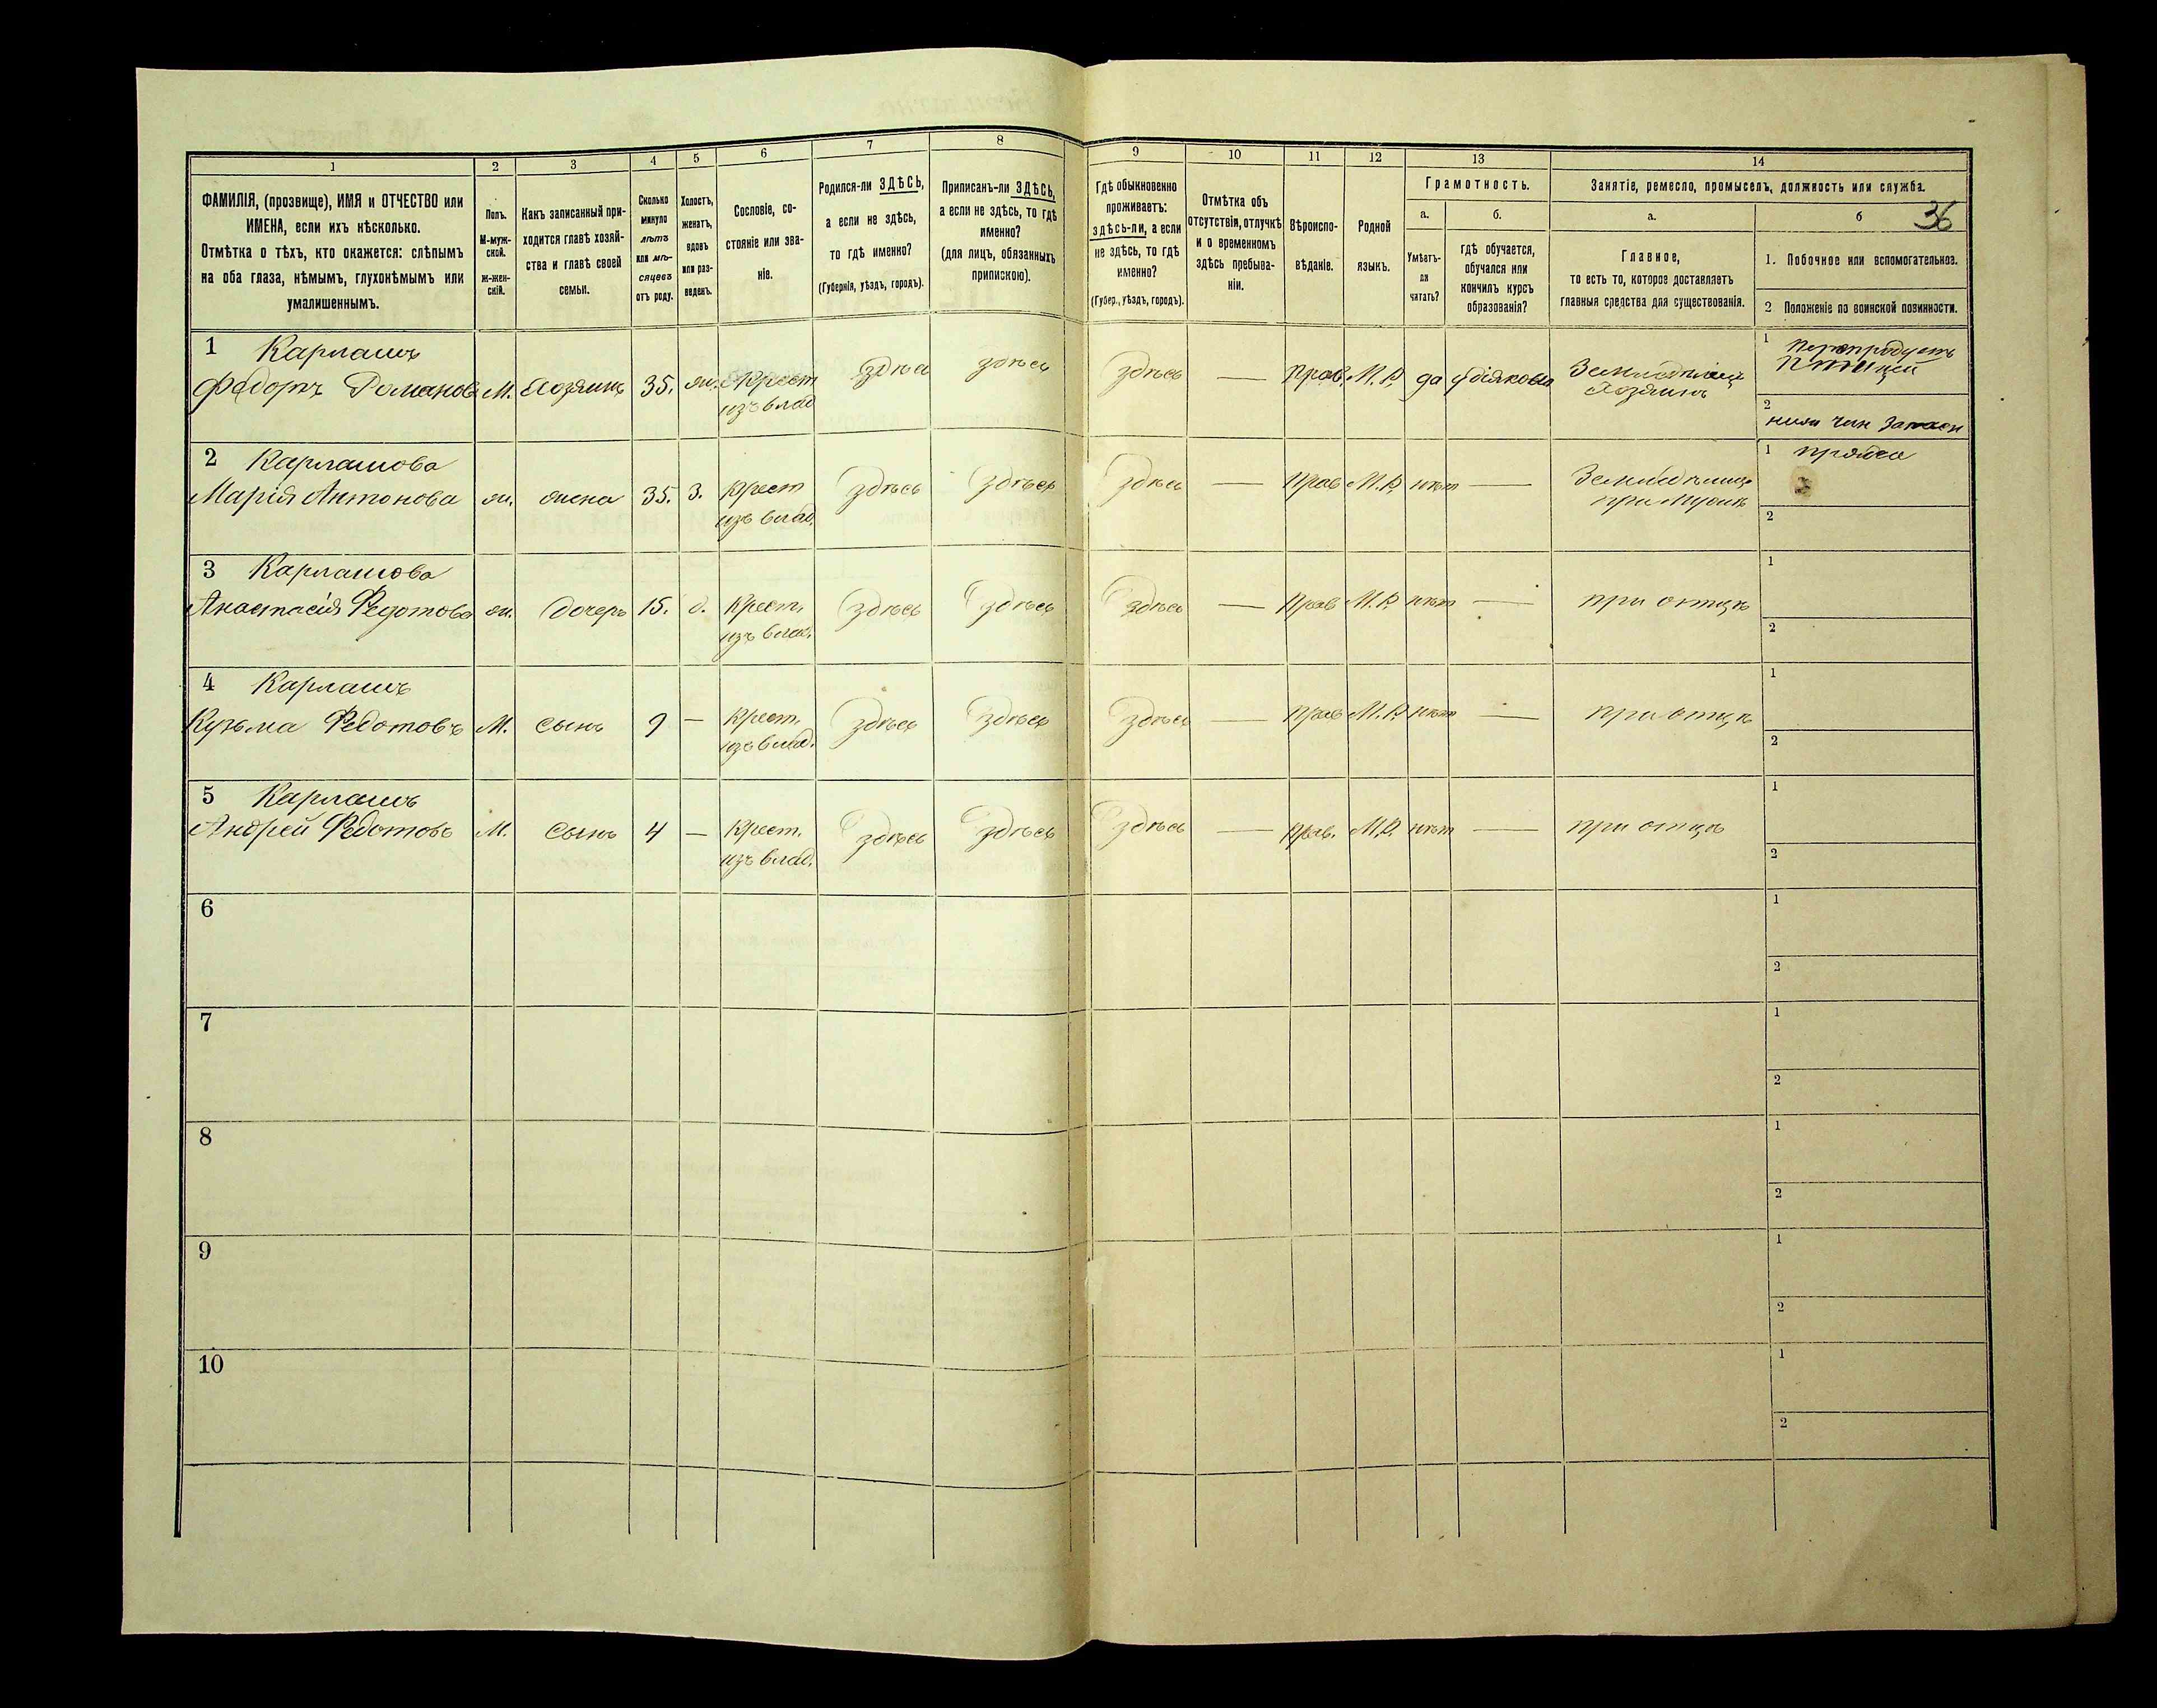 1
2
3
4
5
6
7
8
ФАМИЛІЯ, (прозвище), ИМЯ и ОТЧЕСТВО или
ИМЕНА, если ихъ нѣсколько.
Отмѣтка о тѣхъ, кто окажется: слѣпымъ
на оба глаза, нѣмымъ, глухонѣмымъ или
умалишеннымъ.
Полъ.
М-муж-
ской.
Ж-жен-
скій.
Какъ записанный при-
ходится главѣ хозяй-
ства и главѣ своей
семьи.
Сколько
минуло
лѣтъ
или мѣ-
сяцевъ
отъ роду.
Холостъ,
женатъ,
вдовъ
или раз-
веденъ.
Сословіе, со-
стояніе или зва-
ніе.
Родился-ли ЗДѢСЬ,
а если не здѣсь,
то гдѣ именно?
(Губернія, уѣздъ, городъ).
Приписанъ-ли ЗДѢСЬ,
а если не здѣсь, то гдѣ
именно?
(для лицъ, обязанныхъ
припискою).
9
10
11
12
13
14
Гдѣ обыкновенно
проживаетъ:
здѣсь-ли, а если
не здѣсь, то гдѣ
именно?
(Губер., уѣздъ, городъ).
Отмѣтка объ
отсутствіи, отлучкѣ
и о временномъ
здѣсь пребыва-
ніи.
Вѣроиспо-
вѣданіе.
Родной
языкъ.
Грамотность.
а.
б.
Умѣетъ-
ли
читать?
гдѣ обучается,
обучался или
кончилъ курсъ
образованія?
Занятіе, ремесло, промыселъ, должность или служба.
а.
б
36
Главное,
то есть то, которое доставляетъ
главныя средства для существованія.
1. Побочное или вспомогательное.
2 Положеніе по воинской повинности.
1 Карлашъ
Федотъ Романовъ М. Хозяинъ 35. ж. Крест изъ влад здѣсь здѣсь здѣсь — Прав. М. Р. да у дьякона Земледѣлецъ Хозяинъ
1 птицей
2 нижн чин запаса
2 Карлашова
Марія Антонова ж. жена 35. з. Крест изъ влад. здѣсь здѣсь здѣсь — Прав М. Р. нѣтъ — при мужѣ
1 пряжа
2
3 Карлашова
Анастасія Федотова ж. дочерь 15. д. Крест. изъ влад. здѣсь здѣсь здѣсь — Прав М. Р. нѣтъ — при отцѣ
1
2
4 Карлашъ
Кузьма Федотовъ М. сынъ 9 — Крест. изъ влад. здѣсь здѣсь здѣсь — Прав М. Р. нѣтъ — при отцѣ
1
2
5 Карлашъ
Андрей Федотовъ М. сынъ 4 — Крест. изъ влад. здѣсь здѣсь здѣсь — Прав. М. Р. нѣтъ — при отцѣ
1
2
6
1
2
7
1
2
8
1
2
9
1
2
10
1
2